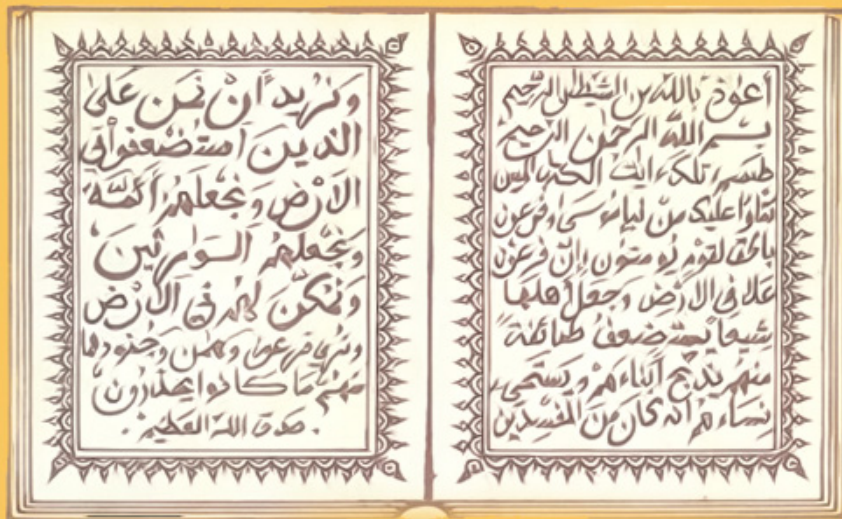 أعوذ بالله من الشيطن الرجيم
بسم الله الرحمن الرحيم
طسم تلك ءايت الكتب المبين
نتلوا عليك من نبإ موسى وفرعون
بالحق لقوم يؤمنون إن فرعون
علا في الأرض وجعل أهلها
شيعا يستضعف طائفة
منهم يذبح أبناءهم ويستحيى
نساءهم انه كان من المفسدين
ونريد أن نمن على
الذين استضعفوا في
الأرض ونجعلهم أئمة
ونجعلهم الوارثين
ونمكن لهم في الأرض
ونري فرعون وهمن وجنودهما
منهم ما كانوا يحذرون
صدق الله العظيم